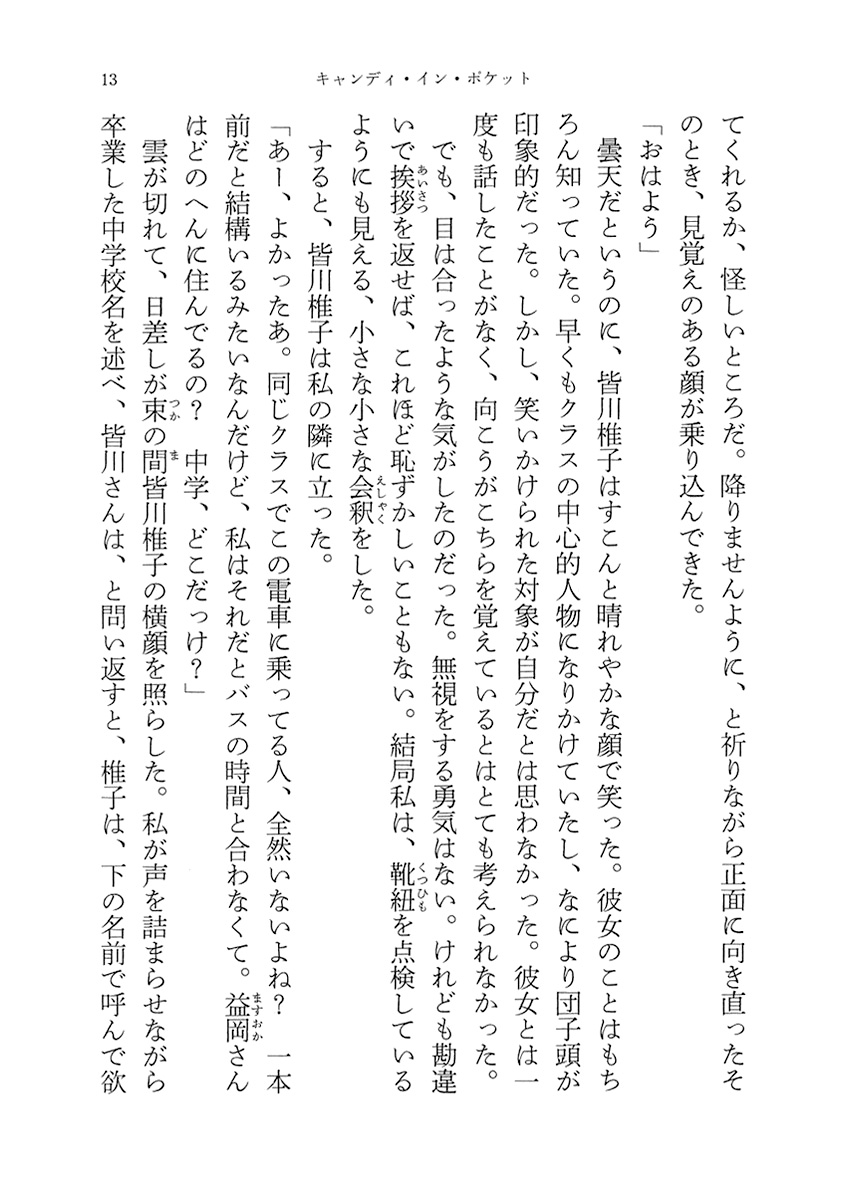 13
キャンディ・イン・ポケット
てくれるか、怪しいところだ。降りませんように、と祈りながら正面に向き直ったそ
のとき、見覚えのある顔が乗り込んできた。
「おはよう」
曇天だというのに、皆川椎子はすこんと晴れやかな顔で笑った。彼女のことはもち
ろん知っていた。早くもクラスの中心的人物になりかけていたし、なにより団子頭が
印象的だった。しかし、笑いかけられた対象が自分だとは思わなかった。彼女とは一
度も話したことがなく、向こうがこちらを覚えているとはとても考えられなかった。
でも、目は合ったような気がしたのだった。無視をする勇気はない。けれども勘違
いで挨拶を返せば、これほど恥ずかしいこともない。結局私は、靴紐を点検している
ようにも見える、小さな小さな会釈をした。
すると、皆川椎子は私の隣に立った。
「あー、よかったあ。同じクラスでこの電車に乗ってる人、全然いないよね？　一本
前だと結構いるみたいなんだけど、私はそれだとバスの時間と合わなくて。益岡さん
はどのへんに住んでるの？　中学、どこだっけ？」
雲が切れて、日差しが束の間皆川椎子の横顔を照らした。私が声を詰まらせながら
卒業した中学校名を述べ、皆川さんは、と問い返すと、椎子は、下の名前で呼んで欲